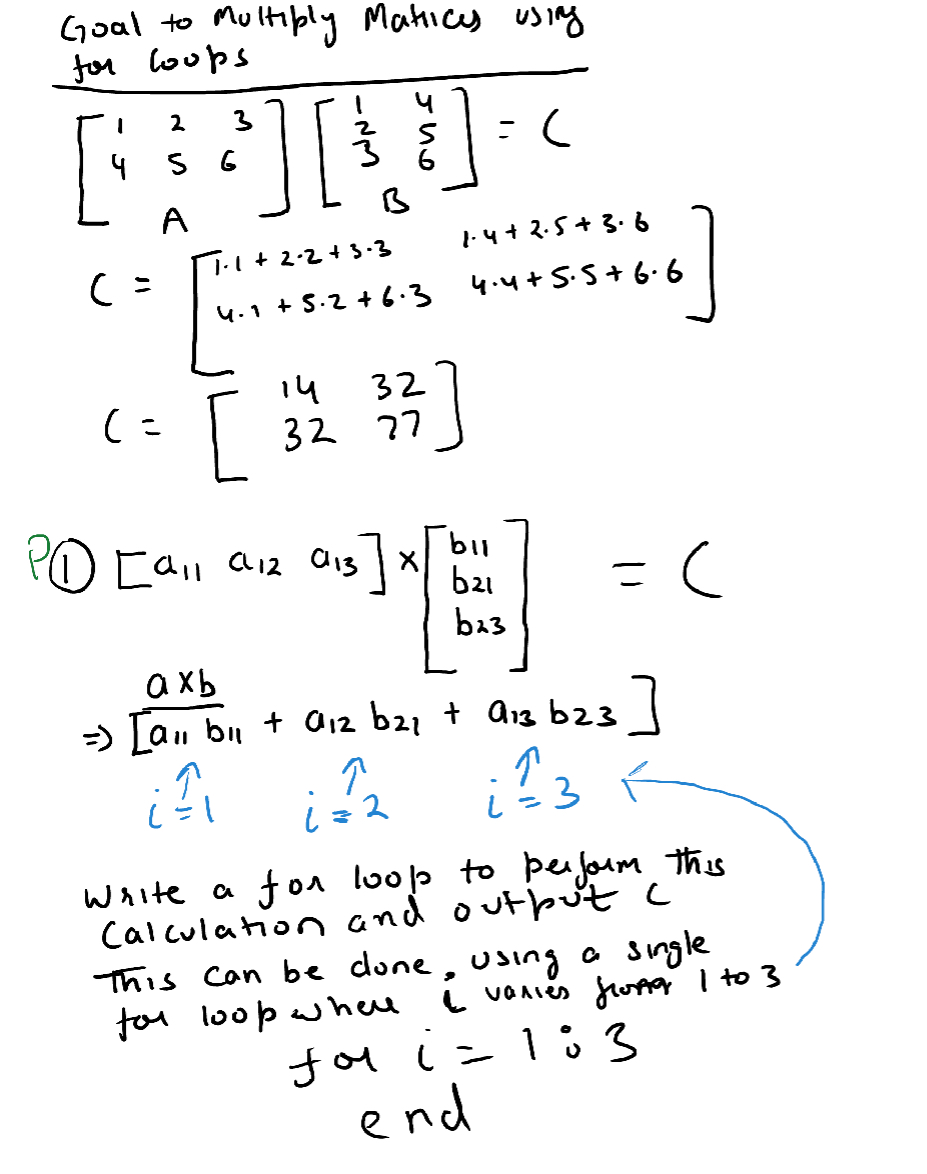 Goal to Multiply Matrices using
for loops
[ 1 2 3 ] [ 1 4 ] = C
[ 4 5 6 ] [ 2 5 ]
[ 3 6 ]
A B
C = [ 1·1 + 2·2 + 3·3 1·4 + 2·5 + 3·6 ]
[ 4·1 + 5·2 + 6·3 4·4 + 5·5 + 6·6 ]
C = [ 14 32 ]
[ 32 77 ]
P① [a11 a12 a13] × [ b11 ] = C
[ b21 ]
[ b23 ]
a×b
⇒ [a11 b11 + a12 b21 + a13 b23]
↑ ↑ ↑
i=1 i=2 i=3
Write a for loop to perform this
Calculation and output C
This can be done, using a single
for loop where i varies from 1 to 3
for i = 1:3
end